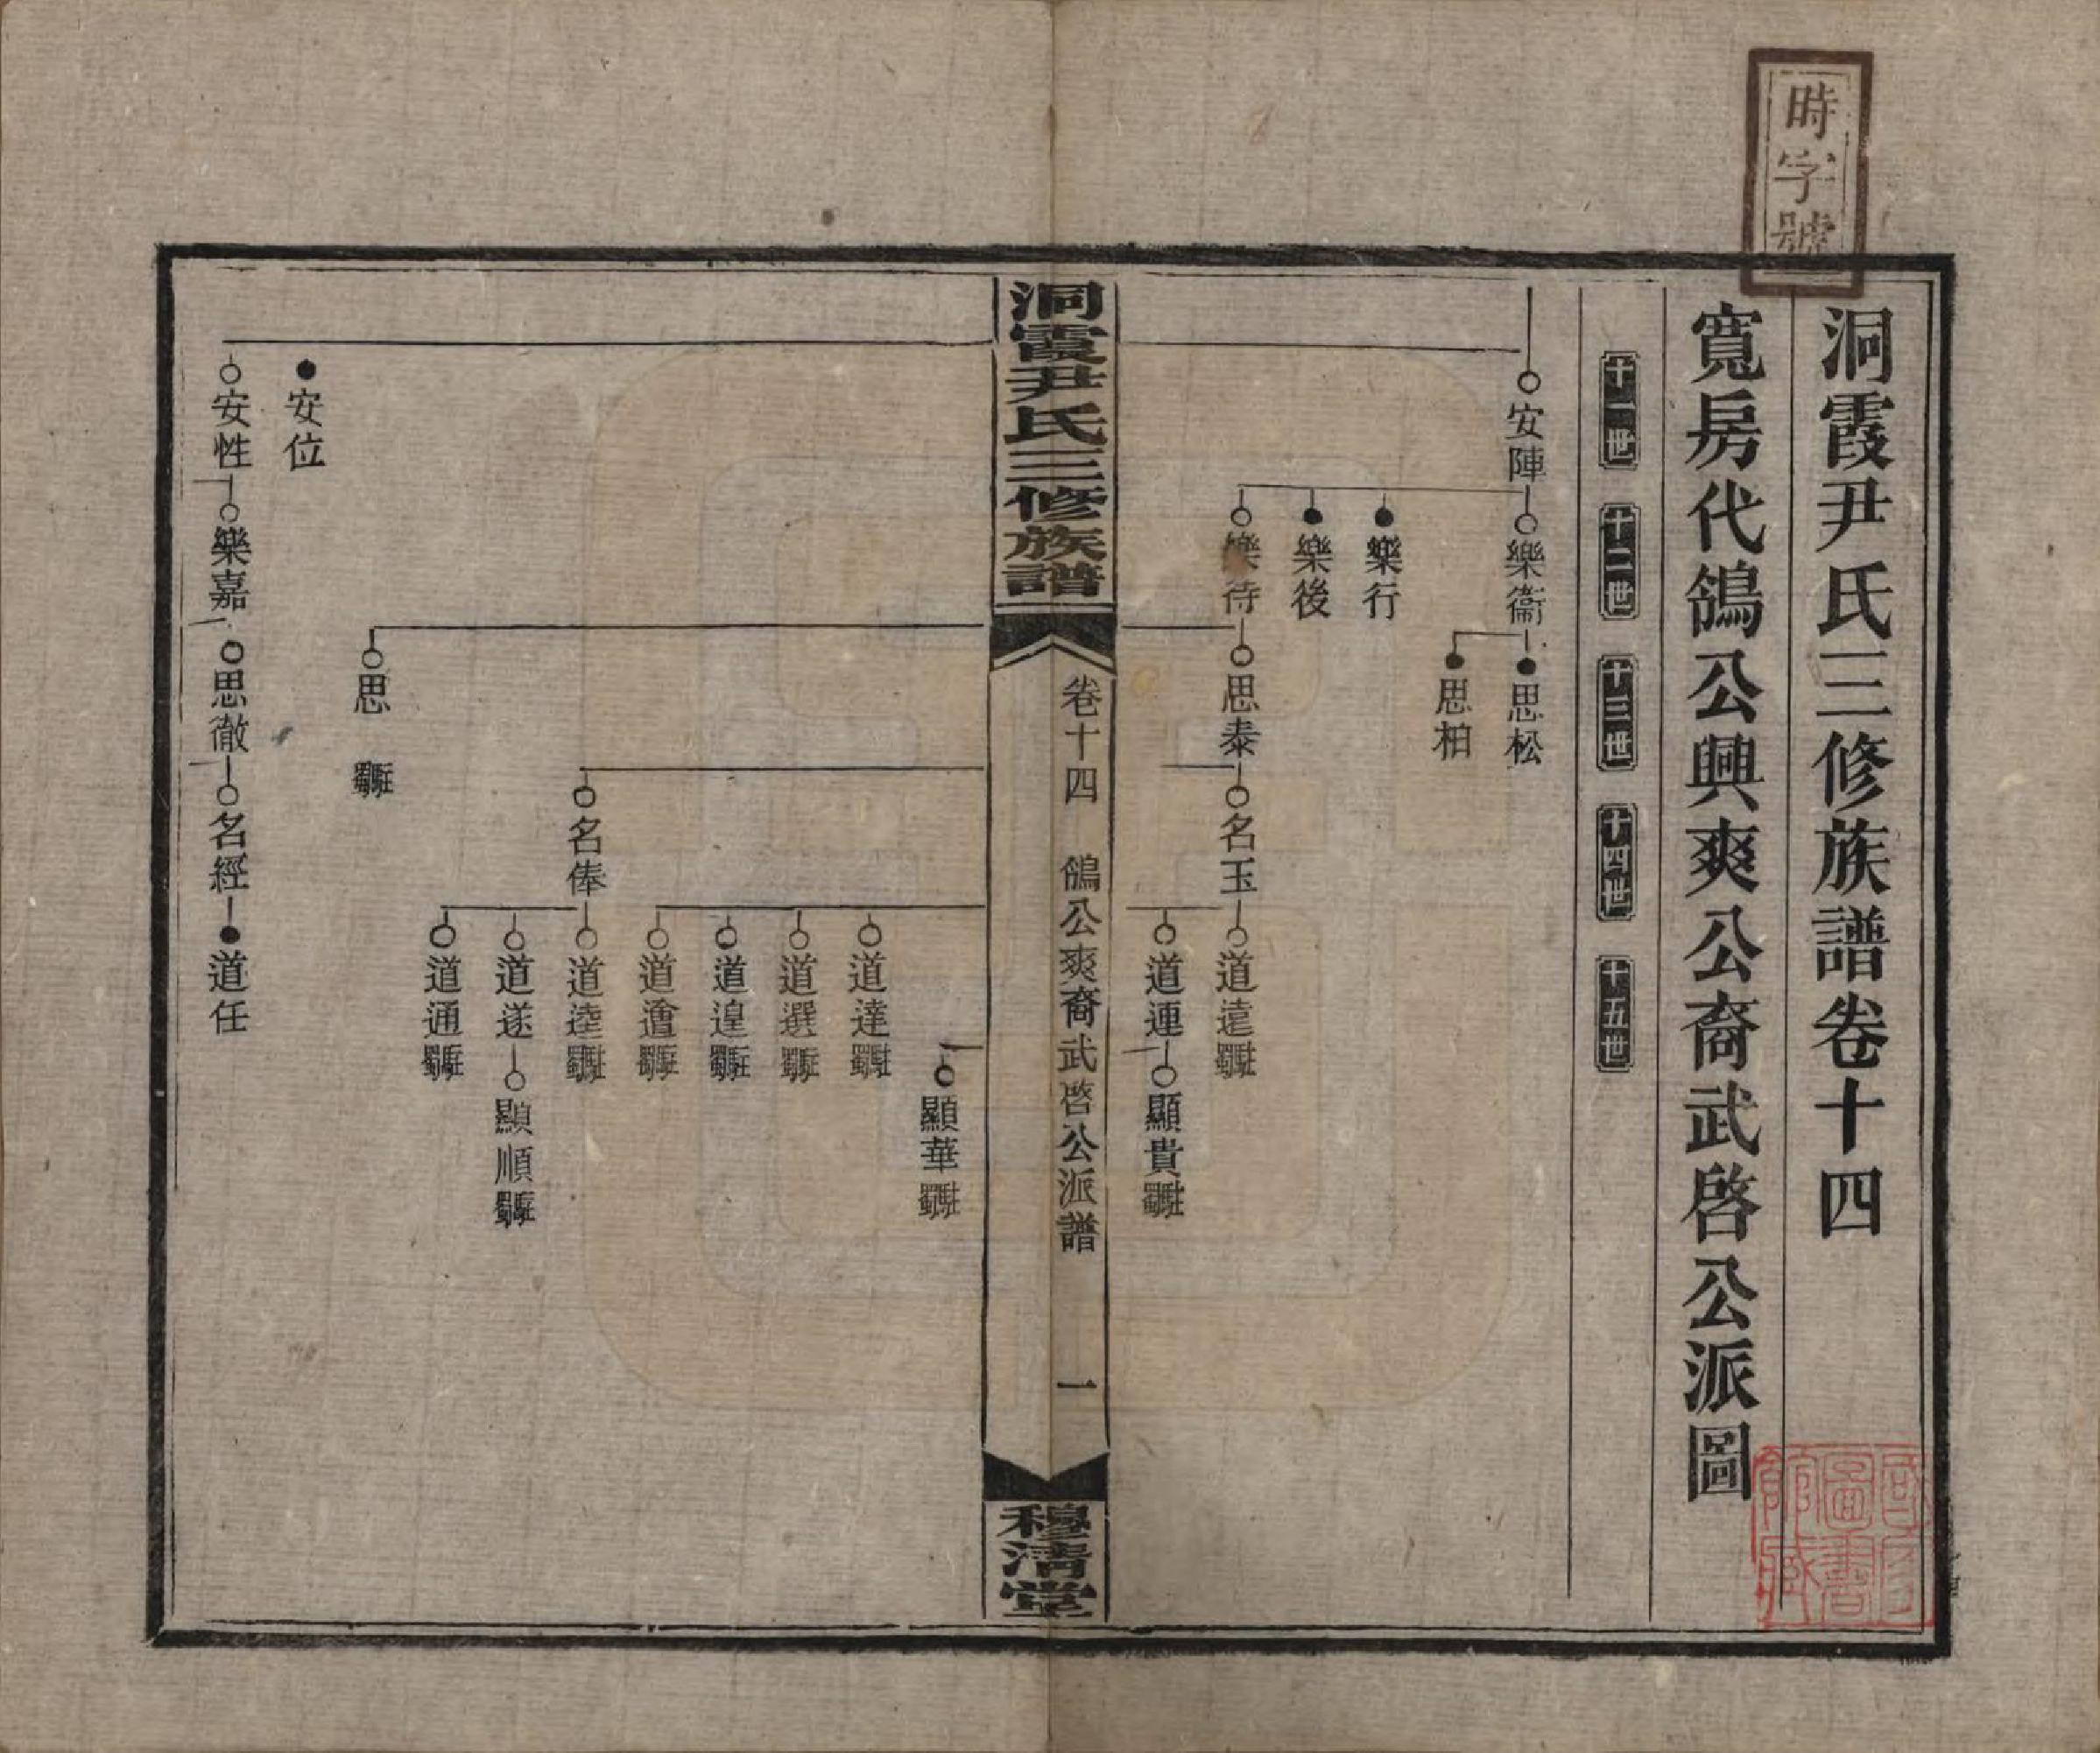 時字號
洞霞尹氏三修族譜卷十四
寬房代鴿公興爽公裔武啓公派圖
十一世 十二世 十三世 十四世 十五世
安陣 樂衞 思松
思柏
樂行
樂後
樂待 思泰 名玉 道遠
道連 顯貴
洞霞尹氏三修族譜
卷十四 鴿公爽裔武啓公派譜 一
穆清堂
顯華
道達
道選
道遑
道
名俸 道逵
道遂 顯順
道通
思
安位
安性 樂嘉 思徹 名經 道任